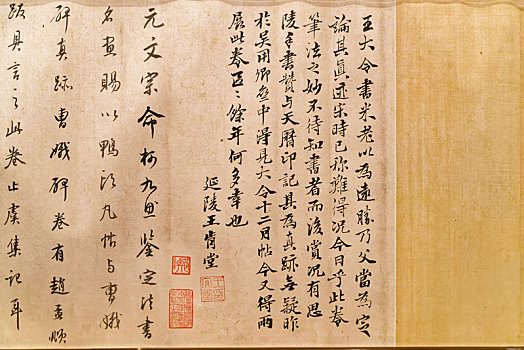 王大令書米老以為遠勝乃父當為定
論其真迹宋時已称難得況今日乎此卷
筆法之妙不待知書者而後賞況有思
陵手書贊与天曆印記其為真跡無疑昨
於吴用卿中得見大令十二月帖今又得兩
展此卷餘年何多幸也
延陵王肯堂
元文宗命柯九思鑒定法書
名畫賜以鴨頭丸帖与曹娥
碑真跡曹娥碑卷有趙孟頫
跋具言之此卷止虞集記耳